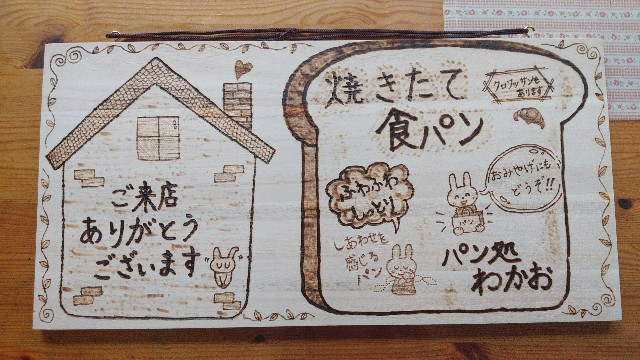 ご来店
ありがとう
ございます
焼きたて
食パン
クロワッサンも
あります
ふわふわ
しっとり
おみやげにも
どうぞ!!
パン
しあわせを
感じる
パン
パン処
わかお